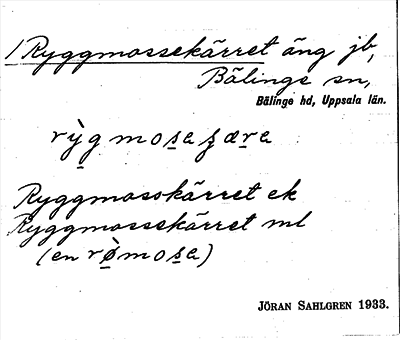 /Ryggmossekärret äng jb,
Bälinge sn,
Bälinge hd, Uppsala län.
rỳg mosa ʂæra
Ryggmossekärret ek
Ryggmossekärret ml
(en rø̀mosa)
JÖRAN SAHLGREN 1933.